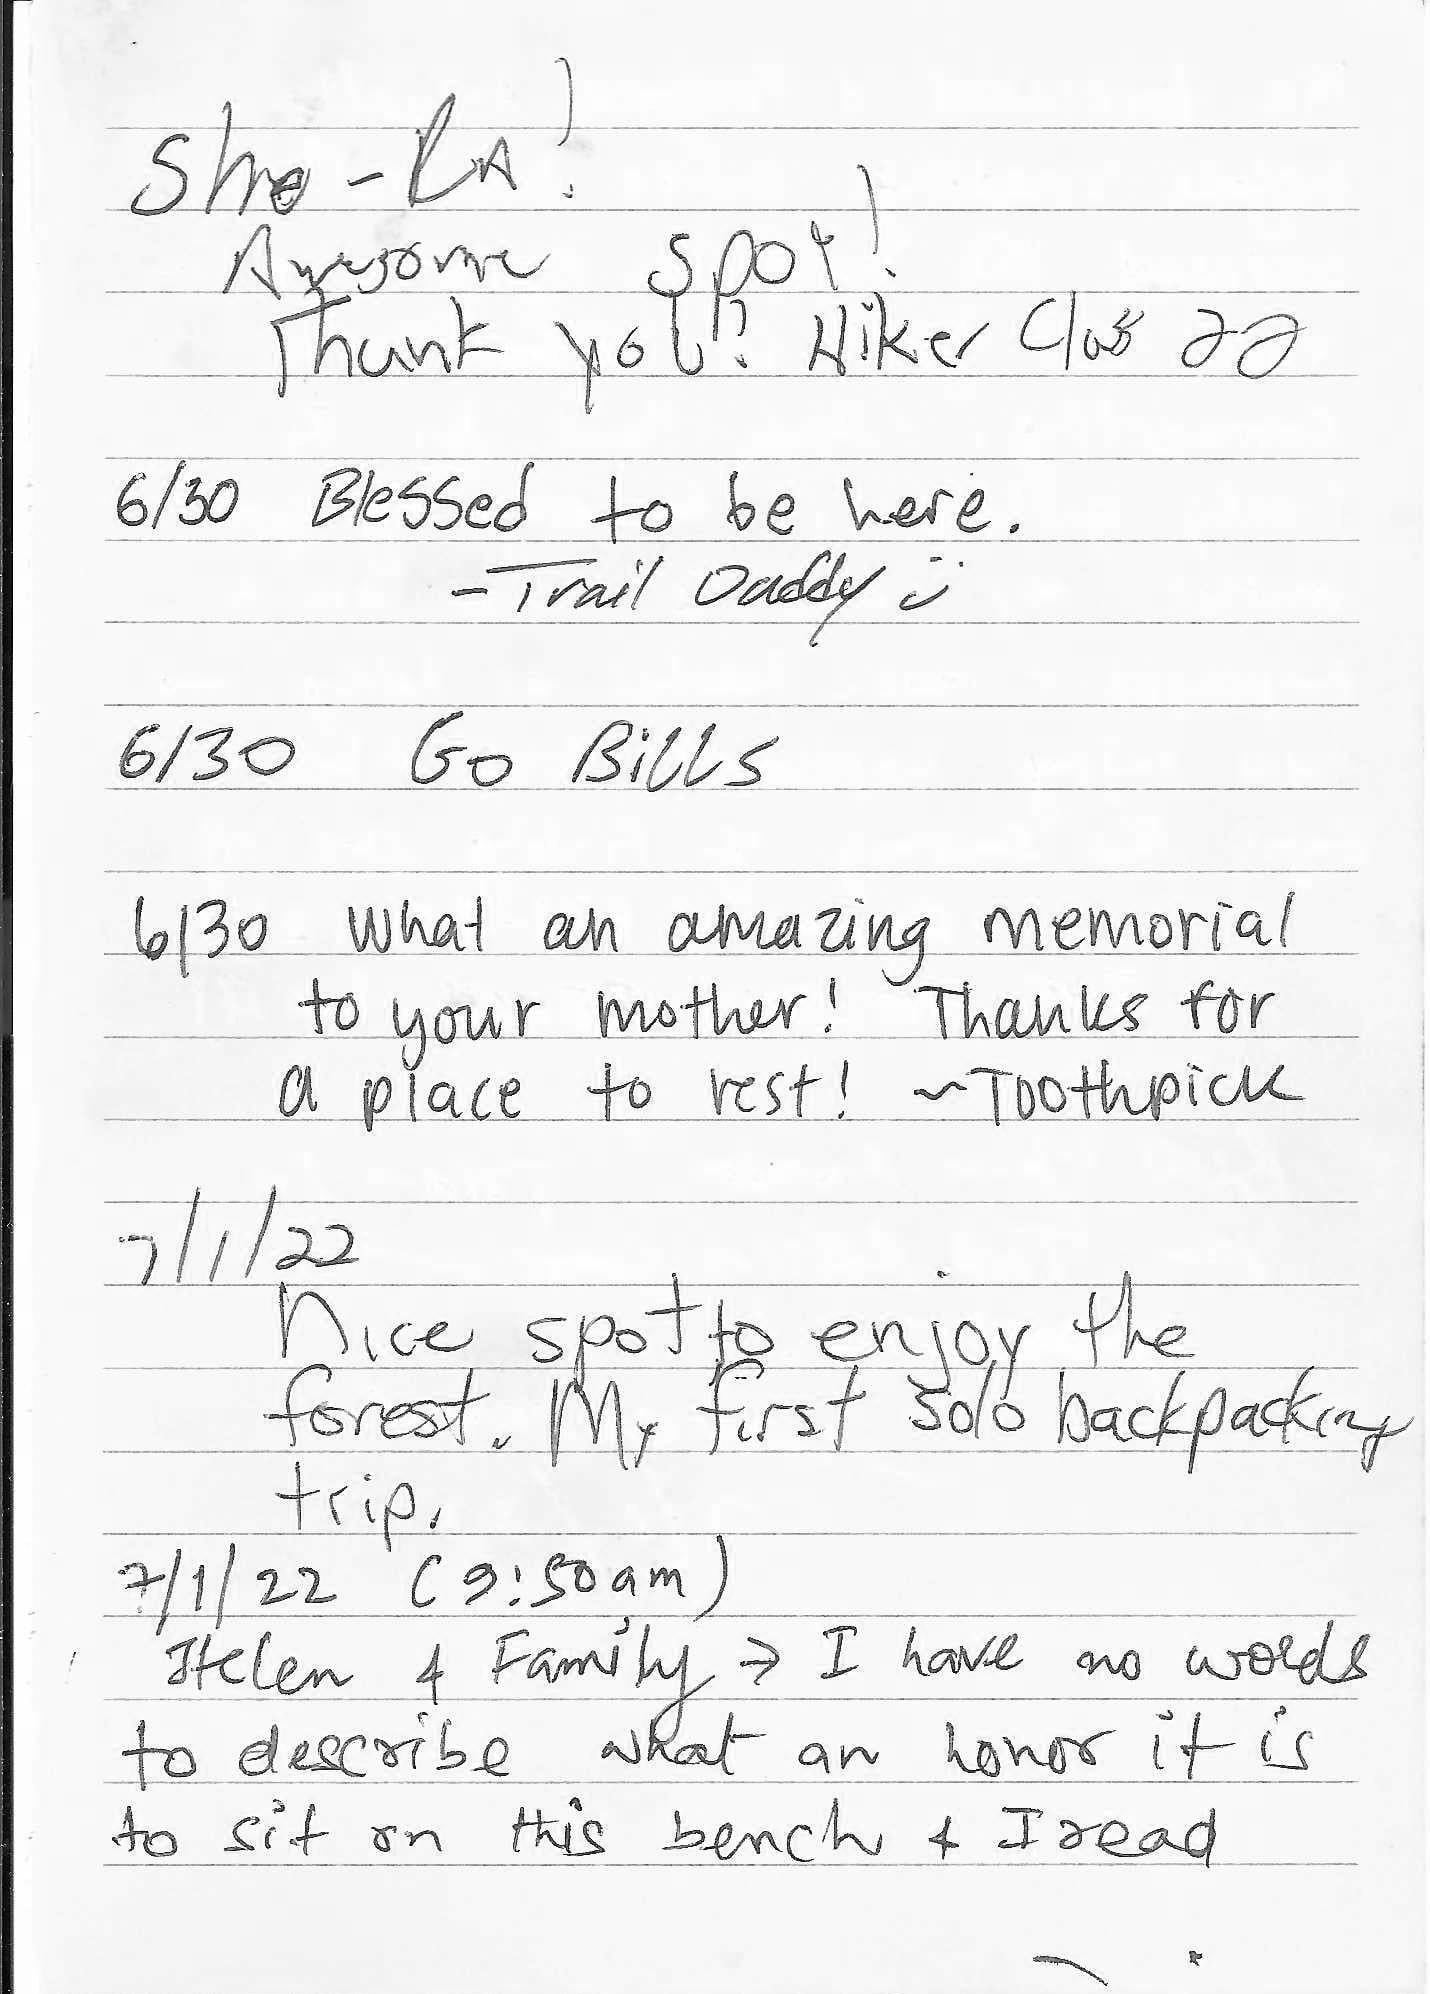 She-RA!
Awesome spot!
Thank you! Hiker Class 22
6/30 Blessed to be here.
- Trail Daddy :)
6/30 Go Bills
6/30 What an amazing memorial
to your mother! Thanks for
a place to rest! ~Toothpick
7/1/22
Nice spot to enjoy the
forest. My first solo backpacking
trip.
7/1/22 (9:50am)
Helen & Family → I have no words
to describe what an honor it is
to sit on this bench & I read